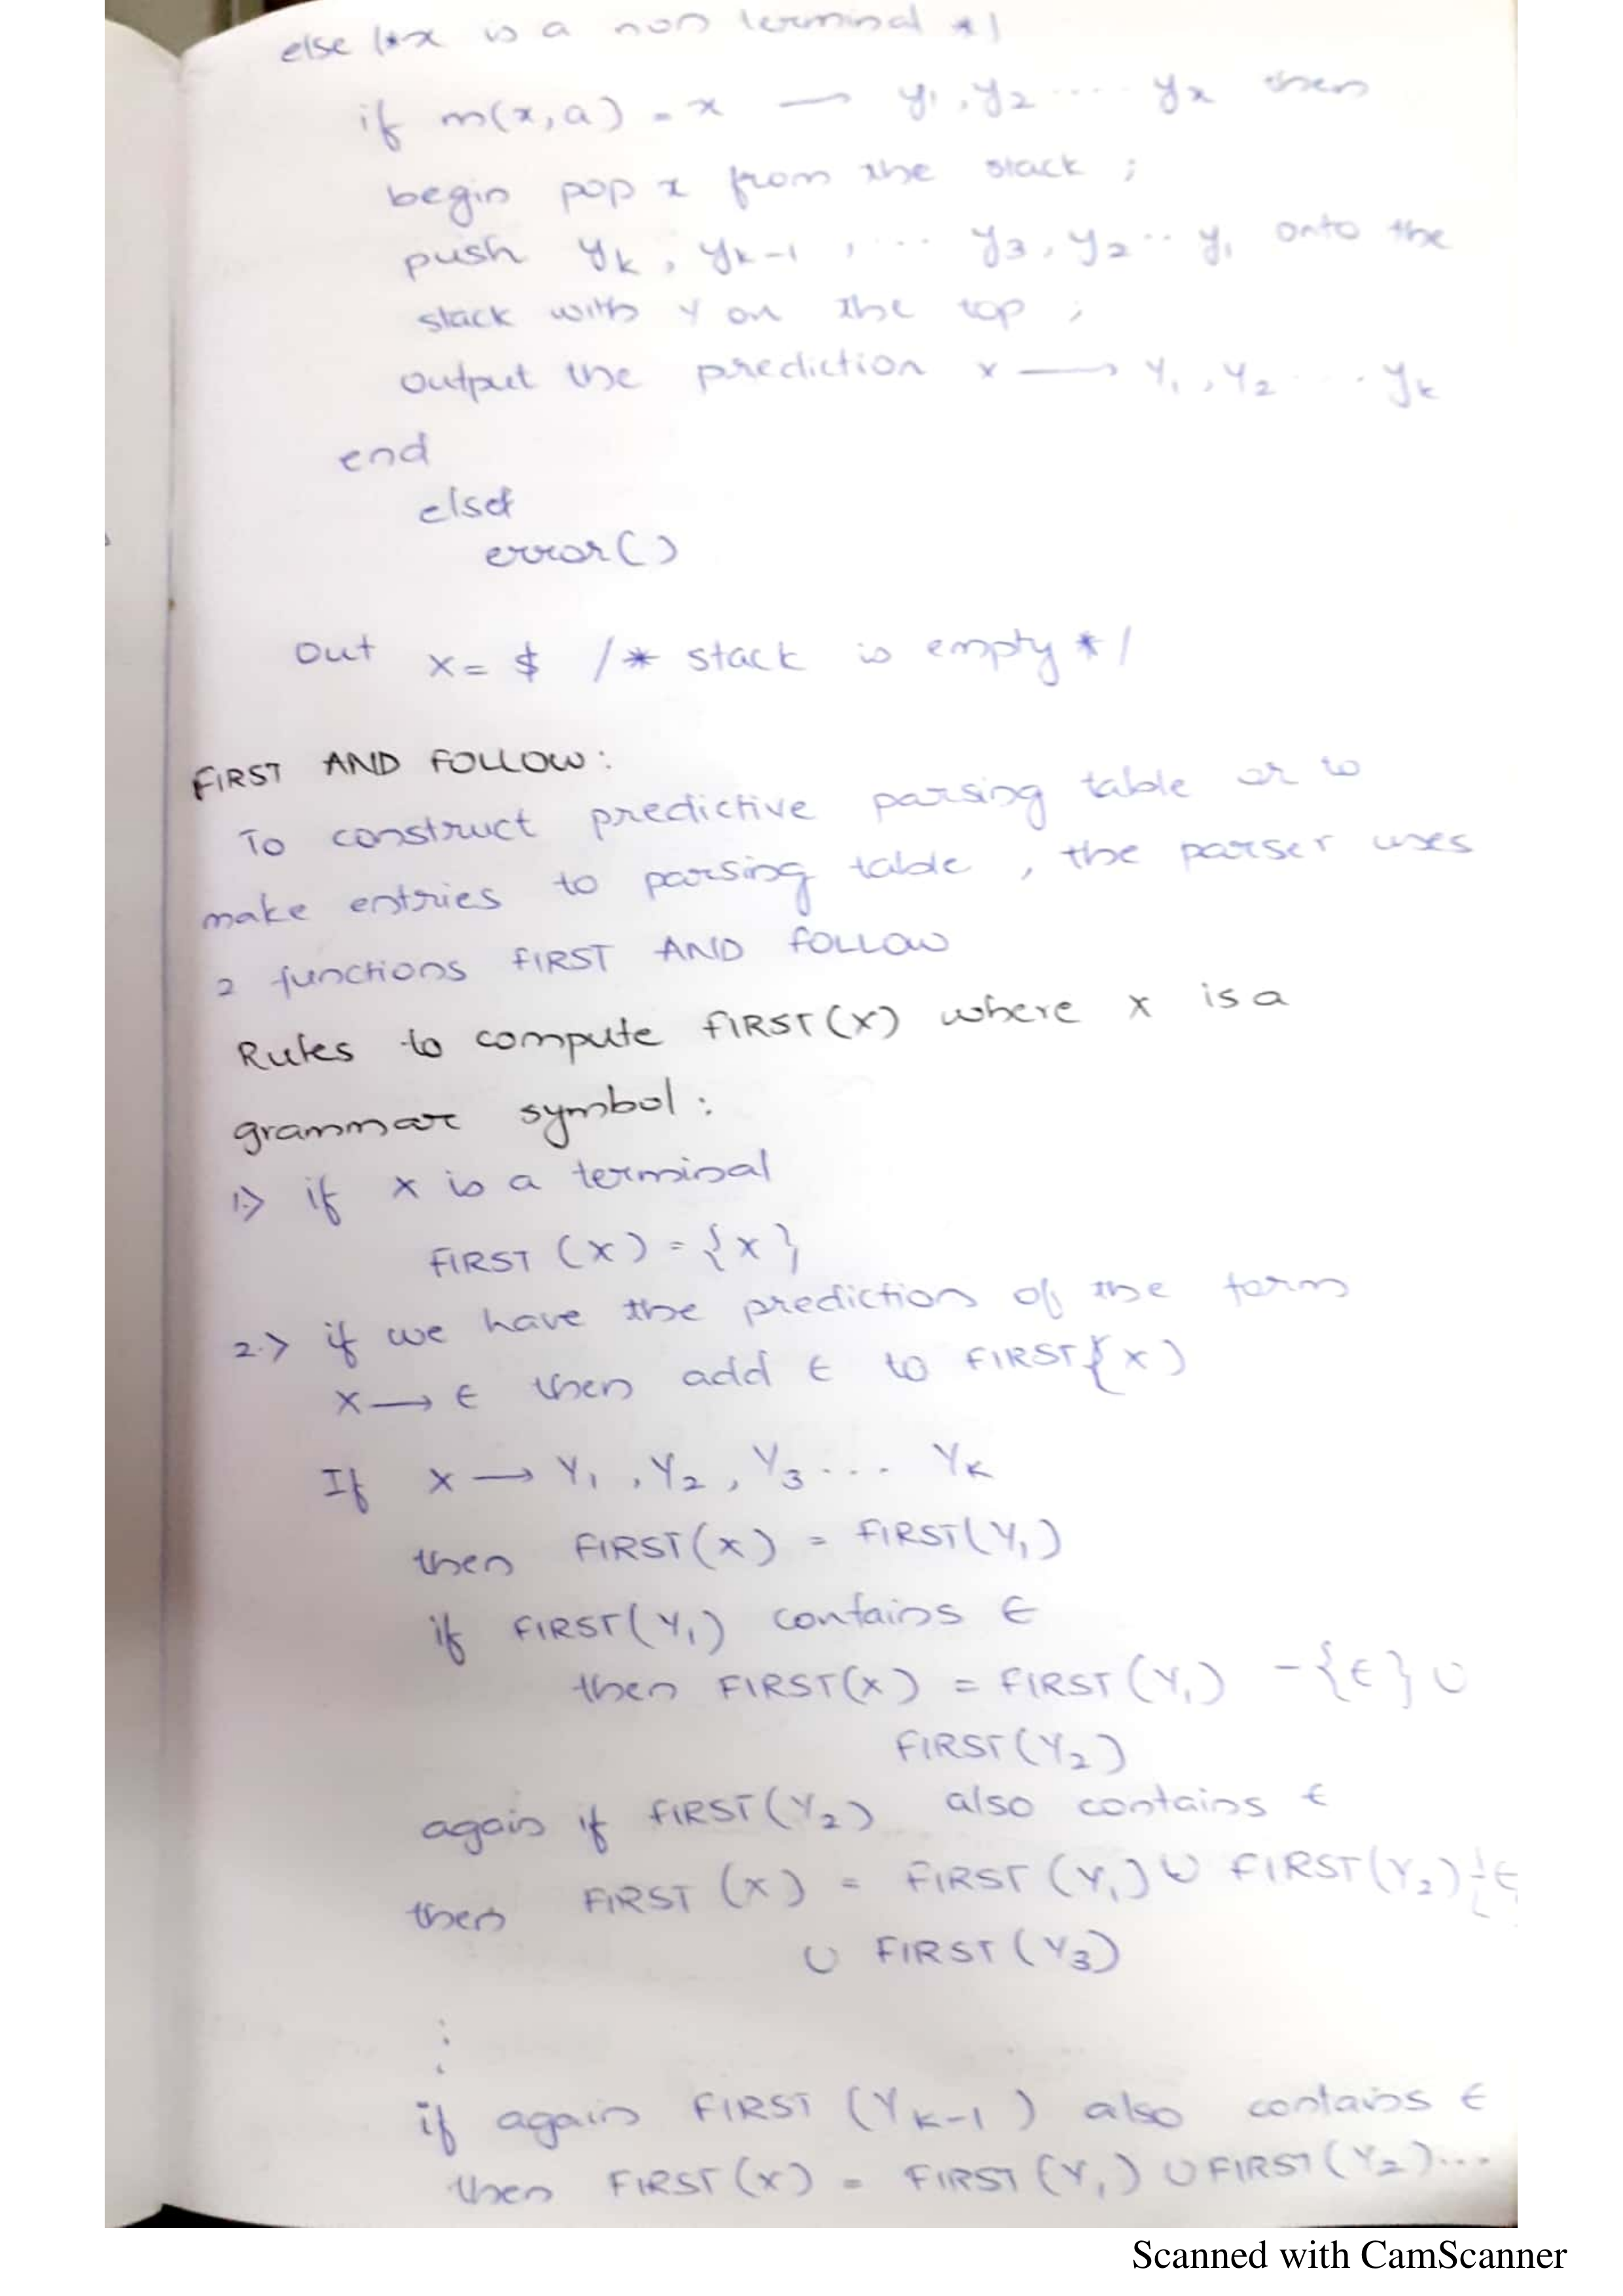 else /*x is a non terminal */
if m(x,a) = x → y1, y2 .... yx then
begin pop x from the stack ;
push yk, yk-1, ... y3, y2 .. y1 onto the
stack with Y on the top ;
output the prediction x → Y1, Y2 ... yk
end
else
error()
out x = $ /* stack is empty */
FIRST AND FOLLOW:
To construct predictive parsing table or to
make entries to parsing table, the parser uses
2 functions FIRST AND FOLLOW
Rules to compute FIRST(X) where x is a
grammar symbol:
1.> if x is a terminal
FIRST (X) = {x}
2.> if we have the prediction of the form
X → ε then add ε to FIRST{X)
If X → Y1, Y2, Y3 ... YK
then FIRST(X) = FIRST(Y1)
if FIRST(Y1) contains ε
then FIRST(X) = FIRST(Y1) - {ε} ∪
FIRST(Y2)
again if FIRST(Y2) also contains ε
then FIRST (X) = FIRST (Y1) ∪ FIRST(Y2) -{ε
∪ FIRST(Y3)
:
if again FIRST (YK-1) also contains ε
then FIRST(X) = FIRST (Y1) ∪ FIRST(Y2)...
Scanned with CamScanner